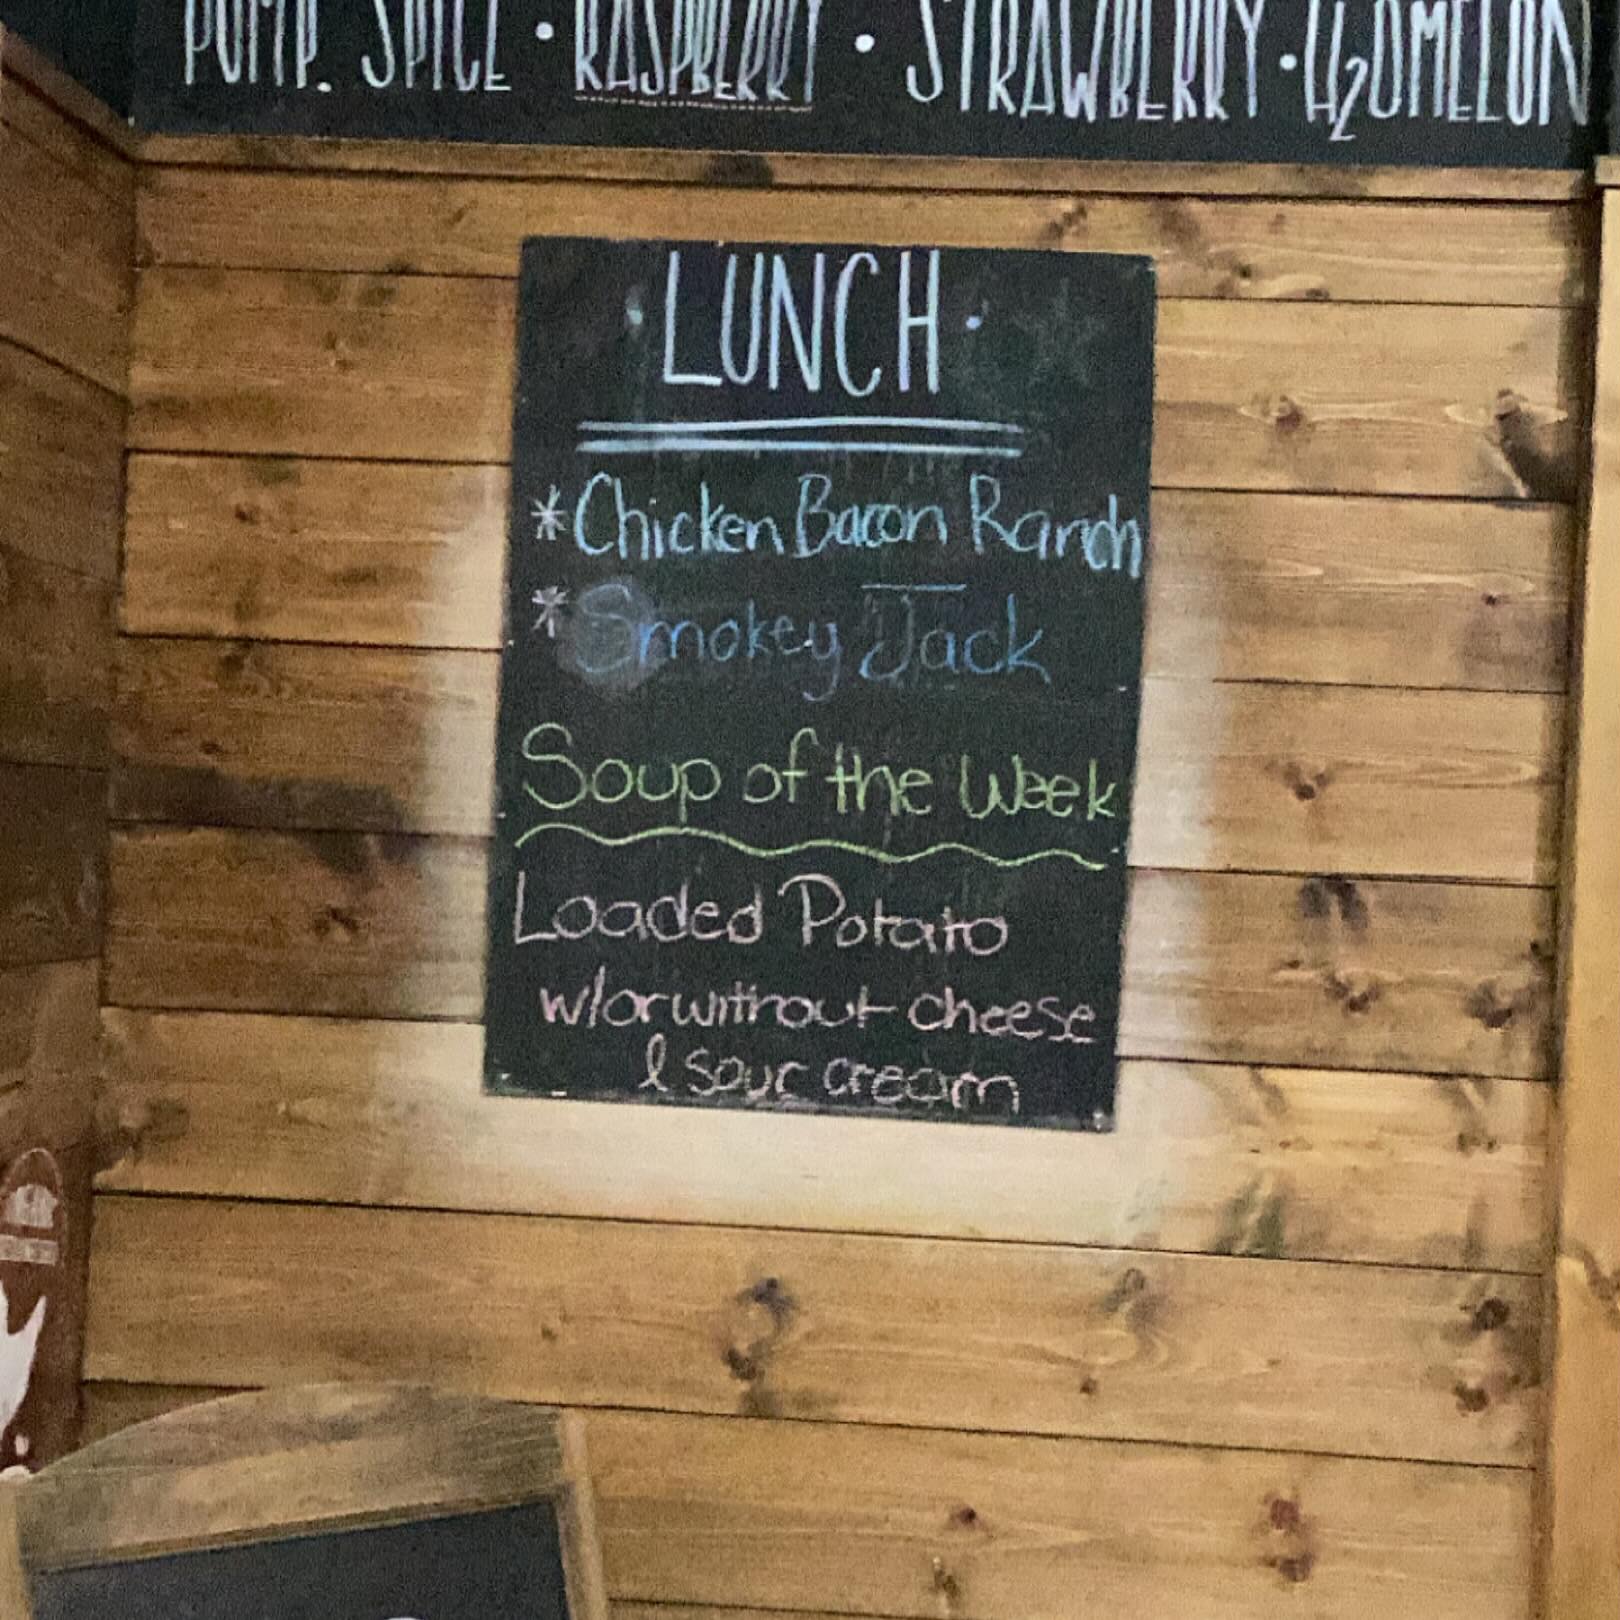 PUMP. SPICE · RASPBERRY · STRAWBERRY · H2OMELON
· LUNCH ·
* Chicken Bacon Ranch
* Smokey Jack
Soup of the Week
Loaded Potato
w/or without cheese
& sour cream